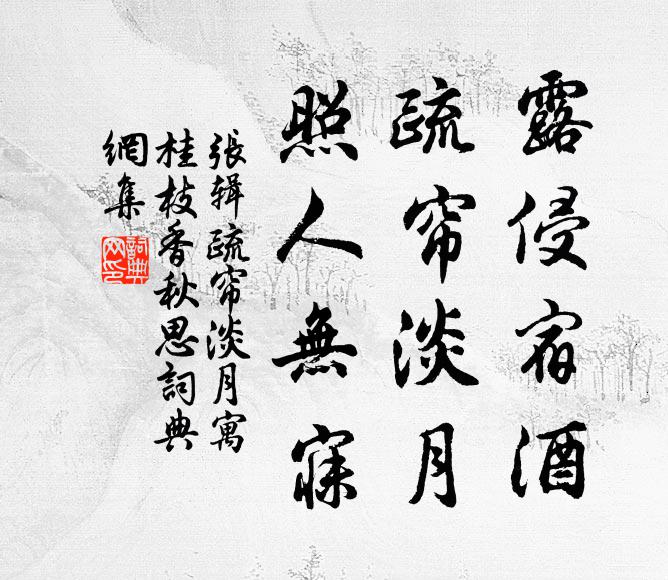 露侵宿酒
疏帘淡月
照人無寐
張辑疏帘淡月寓
桂枝香秋思詞典
網集
詞典
网印